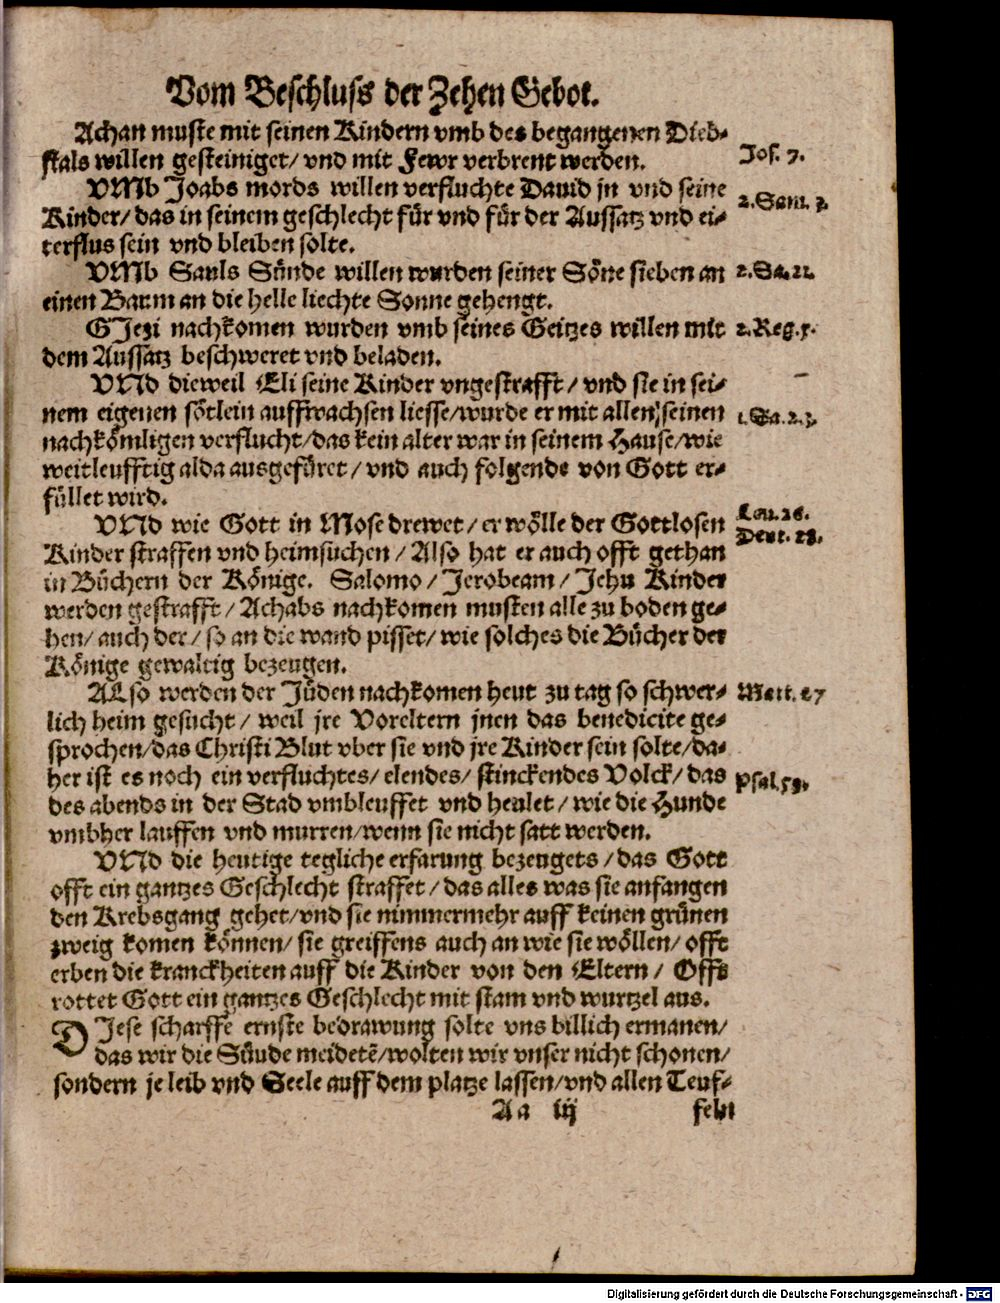 Vom Beschluss der Zehen Gebot.
Achan muste mit seinen Kindern vmb des begangenen Dieb-
stals willen gesteiniget/ vnd mit Fewr verbrent werden.
Jos. 7.
VMb Joabs mords willen verfluchte Dauid jn vnd seine
2. Sam. 3.
Kinder/ das in seinem geschlecht für vnd für der Aussatz vnd ei-
terflus sein vnd bleiben solte.
VMb Sauls Sünde willen wurden seiner Söne sieben an
2. Sa. 21.
einen Baum an die helle liechte Sonne gehengt.
GJezi nachkomen wurden vmb seines Geitzes willen mit
2. Reg. 5.
dem Aussatz beschweret vnd beladen.
VNd dieweil Eli seine Kinder vngestrafft/ vnd sie in sei-
nem eigenen sötlein auffwachsen liesse/ wurde er mit allen seinen
1. Sa. 2. 3.
nachkömligen verflucht/ das kein alter war in seinem Hause/ wie
weitleufftig alda ausgefüret/ vnd auch folgends von Gott er-
füllet wird.
VNd wie Gott in Mose drewet/ er wölle der Gottlosen
Leu. 26.
Deut. 28.
Kinder straffen vnd heimsuchen/ Also hat er auch offt gethan
in Büchern der Könige. Salomo/ Jerobeam/ Jehu Kinder
werden gestrafft/ Achabs nachkomen musten alle zu boden ge-
hen/ auch der/ so an die wand pisset/ wie solches die Bücher der
Könige gewaltig bezeugen.
ALso werden der Jüden nachkomen heut zu tag so schwer-
Matt. 27
lich heim gesucht/ weil jre Voreltern jnen das benedicite ge-
sprochen/ das Christi Blut vber sie vnd jre Kinder sein solte/ da-
her ist es noch ein verfluchtes/ elendes/ stinckendes Volck/ das
Psal. 59.
des abends in der Stad vmbleuffet vnd heulet/ wie die Hunde
vmbher lauffen vnd murren/ wenn sie nicht satt werden.
VNd die heutige tegliche erfarung bezeugets/ das Gott
offt ein gantzes Geschlecht straffet/ das alles was sie anfangen
den Krebsgang gehet/ vnd sie nimmermehr auff keinen grünen
zweig komen können/ sie greiffens auch an wie sie wöllen/ offt
erben die kranckheiten auff die Kinder von den Eltern/ Offt
rottet Gott ein gantzes Geschlecht mit stam vnd wurtzel aus.
DJese scharffe ernste bedrawung solte vns billich ermanen/
das wir die Sünde meidetē/ wolten wir vnser nicht schonen/
sondern je leib vnd Seele auff dem platze lassen/ vnd allen Teuf-
Aa iij
feln
Digitalisierung gefördert durch die Deutsche Forschungsgemeinschaft - DFG